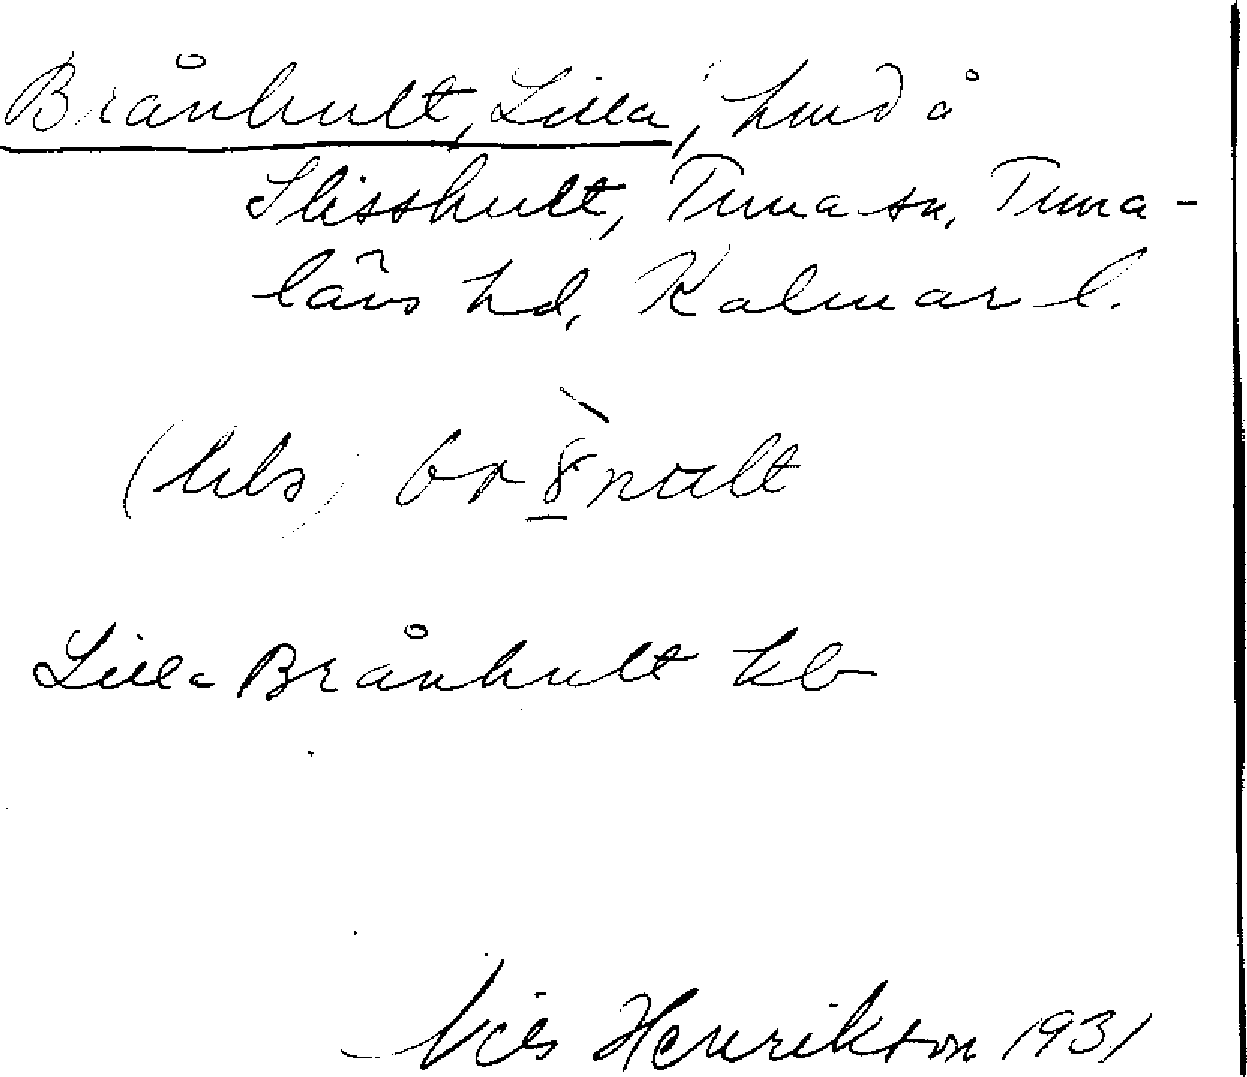 Brånhult, Lilla, hmd å
Slisshult, Tuna sn, Tuna-
läns hd, Kalmar l.
(lils) br8̱̀nult
Lilla Brånhult kb
Nils Henrikson 1931